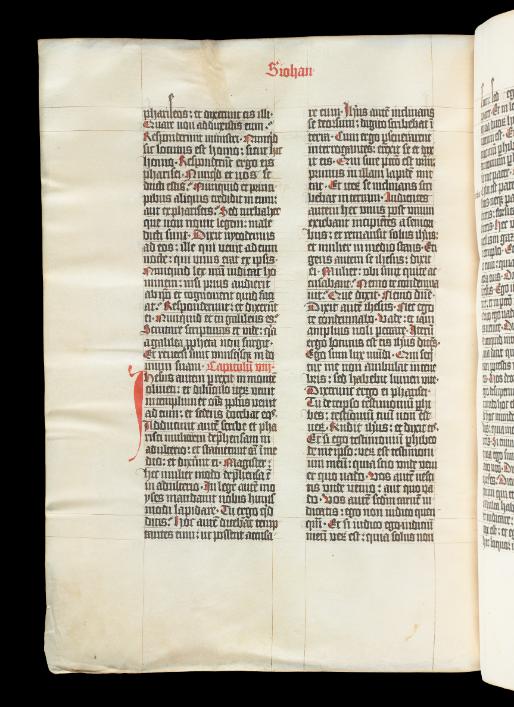 S iohan
pharileos: et dixerunt eis illi·
Quare non adduxistis eum·
Responderunt ministri· Nunqͣ
sic locutus est homo: sicut hic
homo· Responderunt ergo eis
pharisei· Nunqͥd et vos se
ducti estis· Nunquid et prin
pibus aliquis credidit in eum:
aut ex phariseis· Sed turba hec
que non novit legem: male
dicti sunt· Dixit nycodemus
ad eos: ille qui venit ad eum
nocte: qui unus erat ex ipsis·
Nunquid lex nrā iudicat ho
minem: nisi prius audierit
ab ipso et cognoverit quid faci
at· Responderunt et dixerūt
ei· Nunquid et tu galileus es·
Scrutare scripturas et vide: qͣ
a galilea ꝓpheta non surgit·
Et reversi sunt unusqͥsqꝫ in do
mum suam· Capitulū viij·
Ihesus autem perrexit in monte
oliveti: et diluculo iteꝝ venit
in templum et oīs ppl's venit
ad eum: et sedens docebat eos·
Adducunt autē scribe et pha
risei mulierem dephensam in
adulterio: et statuerunt eā ī me
dio: et dixerūt ei· Magister:
hec mulier modo dephensa ē
in adulterio· In lege autē mo
yses mandavit nobis huiusͦ
modi lapidare· Tu ergo qͥd
dicis· Hoc autē dicebant temp
tantes eum: ut possent accusa
re eum· Ihūs autē inclinans
se deorsum: digito scribebat ī
terra· Cum ergo pseverarent
interrogantes: erexit se et dix
it eis· Qui sine pctō est vrm̄:
primus in illam lapidē mit
tat· Et iteꝝ se inclinans scri
bebat in terram· Audientes
autem hec unus post unum
exiebant incipiētes a seniori
bus: et remansit solus ihūs:
et mulier in medio stans· Eri
gens autem se ihesus: dixit
ei· Mulier: ubi sunt qui te ac
cusabant· Nemo te condemna
vit· Que dixit· Nemo dn̄e·
Dixit autē ihesus· Nec ego
te condemnabo· Vade: et iam
amplius noli peccare· Iterū
ergo locutus est eis ihūs dicēs·
Ego sum lux mūdi· Qui seqͥ
tur me non ambulat in tene
bris: sed habebit lumen vite·
Dixerunt ergo ei pharisei·
Tu de te ipso testimoniū phi
bes: testimoniū tuū non est
veꝝ· Rn̄dit ihūs: et dixit eis·
Et si ego testimoniū phibeo
de me ipso: veꝝ est testimoni
um meū: quia scio unde veni
et quo vado· Vos autē nesci
tis unde venio: aut quo va
do· Vos autē scd̄m carnē iu
dicatis: ego non iudico quen
qͣm· Et si iudico ego iudiciū
meū veꝝ est: quia solus non